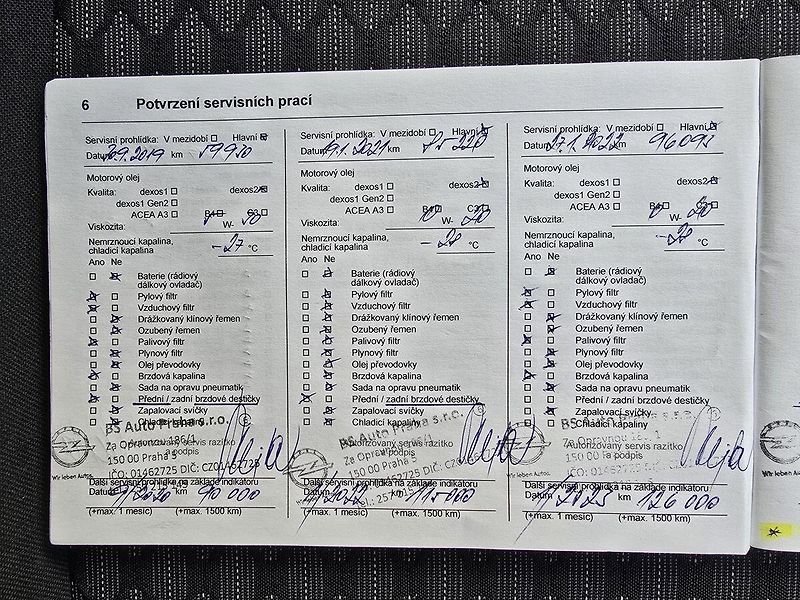 6 Potvrzení servisních prací
Servisní prohlídka: V mezidobí Hlavní
Datum 3.9.2019 km 59930
Motorový olej
Kvalita: dexos1 dexos2
dexos1 Gen2
ACEA A3 B4 C3
Viskozita: W-
Nemrznoucí kapalina,
chladicí kapalina -27 °C
Ano Ne
Baterie (rádiový
dálkový ovladač)
Pylový filtr
Vzduchový filtr
Drážkovaný klínový řemen
Ozubený řemen
Palivový filtr
Plynový filtr
Olej převodovky
Brzdová kapalina
Sada na opravu pneumatik
Přední / zadní brzdové destičky
Zapalovací svíčky
Chladicí kapaliny
BS Auto Praha s.r.o.
Za Opravnou 186/1
Autorizovaný servis razítko
a podpis
150 00 Praha 5
IČO: 01462725 DIČ: CZ01462725
Wir leben Autos.
Další servisní prohlídka na základě indikátoru
Datum 9/2020 km 90 000
(+max. 1 měsíc) (+max. 1500 km)
Servisní prohlídka: V mezidobí Hlavní
Datum 19.1.2021 km 85 220
Motorový olej
Kvalita: dexos1 dexos2
dexos1 Gen2
ACEA A3 B4 C3
Viskozita: W-
Nemrznoucí kapalina,
chladicí kapalina -28 °C
Ano Ne
Baterie (rádiový
dálkový ovladač)
Pylový filtr
Vzduchový filtr
Drážkovaný klínový řemen
Ozubený řemen
Palivový filtr
Plynový filtr
Olej převodovky
Brzdová kapalina
Sada na opravu pneumatik
Přední / zadní brzdové destičky
Zapalovací svíčky
Chladicí kapaliny
BS Auto Praha s.r.o.
Autorizovaný servis razítko
Za Opravnou 186/1
a podpis
150 00 Praha 5
Další servisní prohlídka na základě indikátoru
Datum 1/2022 km 115 000
(+max. 1 měsíc) (+max. 1500 km)
Servisní prohlídka: V mezidobí Hlavní
Datum 27.1.2022 km 96093
Motorový olej
Kvalita: dexos1 dexos2
dexos1 Gen2
ACEA A3 B4 C3
Viskozita: W-
Nemrznoucí kapalina,
chladicí kapalina -28 °C
Ano Ne
Baterie (rádiový
dálkový ovladač)
Pylový filtr
Vzduchový filtr
Drážkovaný klínový řemen
Ozubený řemen
Palivový filtr
Plynový filtr
Olej převodovky
Brzdová kapalina
Sada na opravu pneumatik
Přední / zadní brzdové destičky
Zapalovací svíčky
Chladicí kapaliny
BS Auto Praha s.r.o.
Za Opravnou
Autorizovaný servis razítko
a podpis
150 00 Praha 5
IČO: 01462725 DIČ:
Wir leben Autos.
Další servisní prohlídka na základě indikátoru
Datum 1/2023 km 126 000
(+max. 1 měsíc) (+max. 1500 km)
Wir leben Autos